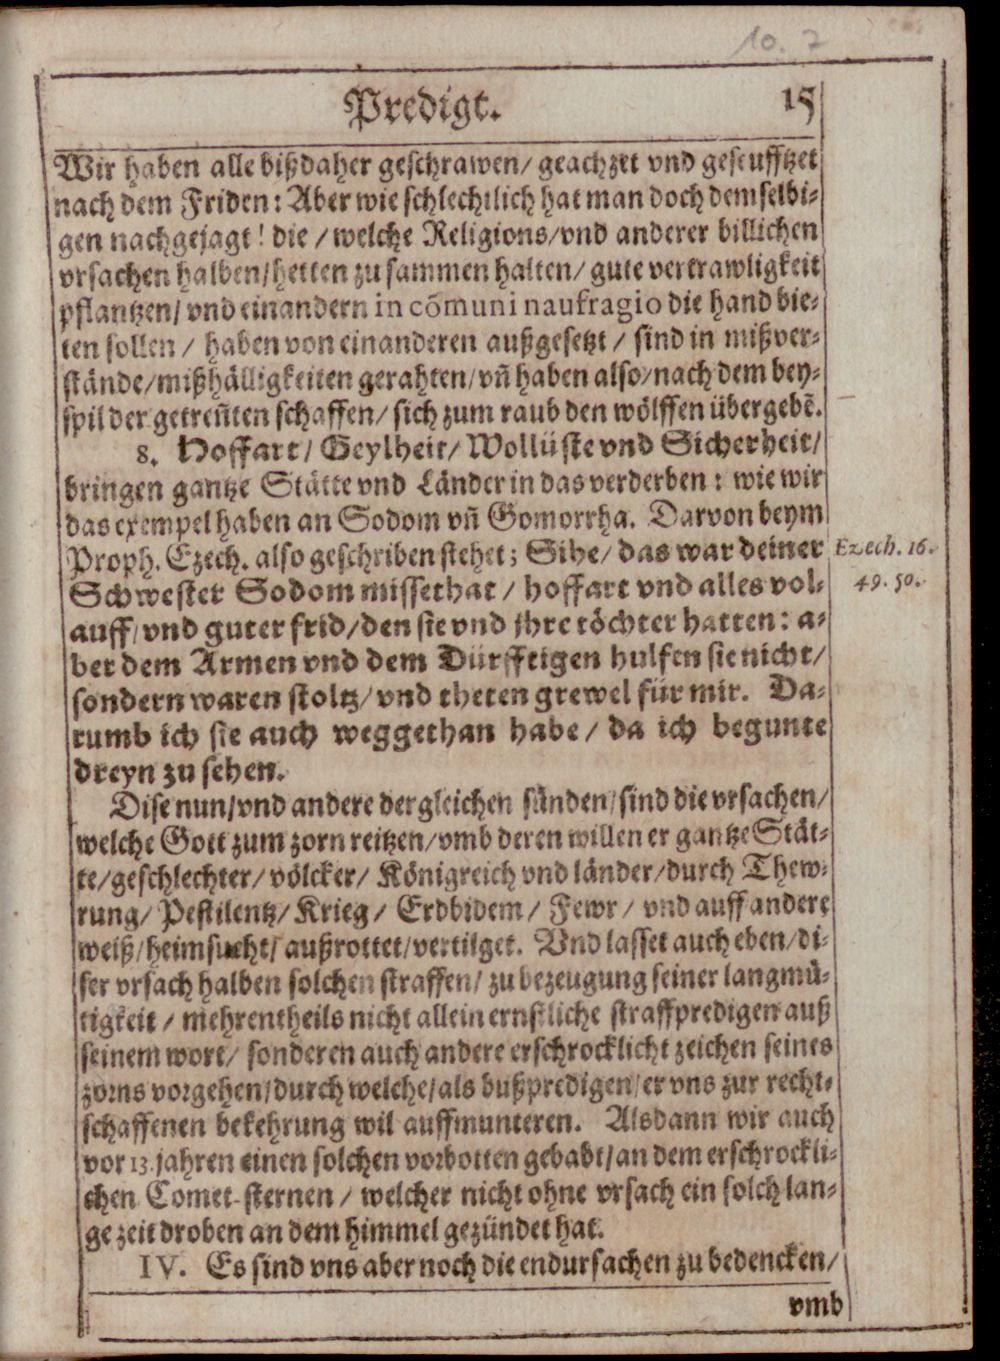 10. 7
Predigt. 15
Wir haben alle bißdaher geschrawen/ geachzet vnd geseufftzet
nach dem Friden: Aber wie schlechtlich hat man doch demselbi-
gen nachgejagt! die / welche Religions/vnd anderer billichen
vrsachen halben/hetten zusammen halten/ gute vertrawligkeit
pflantzen/ vnd einandern in cõmuni naufragio die hand bie-
ten sollen / haben von einanderen außgesetzt / sind in mißver-
stände/mißhälligkeiten gerahten/ vñ haben also/nach dem bey-
spil der getreñten schaffen/ sich zum raub den wölffen übergebẽ.
8. Hoffart/ Geylheit/ Wollüste vnd Sicherheit/
bringen gantze Stätte vnd Länder in das verderben: wie wir
das exempel haben an Sodom vñ Gomorrha. Darvon beym
Proph. Ezech. also geschriben stehet; Sihe/ das war deiner
Ezech. 16.
49. 50.
Schwester Sodom missethat / hoffart vnd alles vol-
auff/ vnd guter frid/den sie vnd jhre töchter hatten: a-
ber dem Armen vnd dem Dürfftigen hulfen sie nicht/
sondern waren stoltz/ vnd theten grewel für mir. Da-
rumb ich sie auch weggethan habe/ da ich begunte
dreyn zu sehen.
Dise nun/vnd andere dergleichen sünden/sind die vrsachen/
welche Gott zum zorn reitzen/vmb deren willen er gantze Stät-
te/geschlechter/ völcker/ Königreich vnd länder/durch Thew-
rung/ Pestilentz/ Krieg/ Erdbidem/ Fewr/ vnd auff andere
weiß/heimsucht/ außrottet/vertilget. Vnd lasset auch eben/di-
ser vrsach halben solchen straffen/ zu bezeugung seiner langmü-
tigkeit / mehrentheils nicht allein ernstliche straffpredigen auß
seinem wort/ sonderen auch andere erschrocklicht zeichen seines
zorns vorgehen/durch welche/als bußpredigen/er vns zur recht-
schaffenen bekehrung wil auffmunteren. Alsdann wir auch
vor 13. jahren einen solchen vorbotten gehabt/an dem erschrockli-
chen Comet-sternen / welcher nicht ohne vrsach ein solch lan-
ge zeit droben an dem himmel gezündet hat.
IV. Es sind vns aber noch die endursachen zu bedencken/
vmb